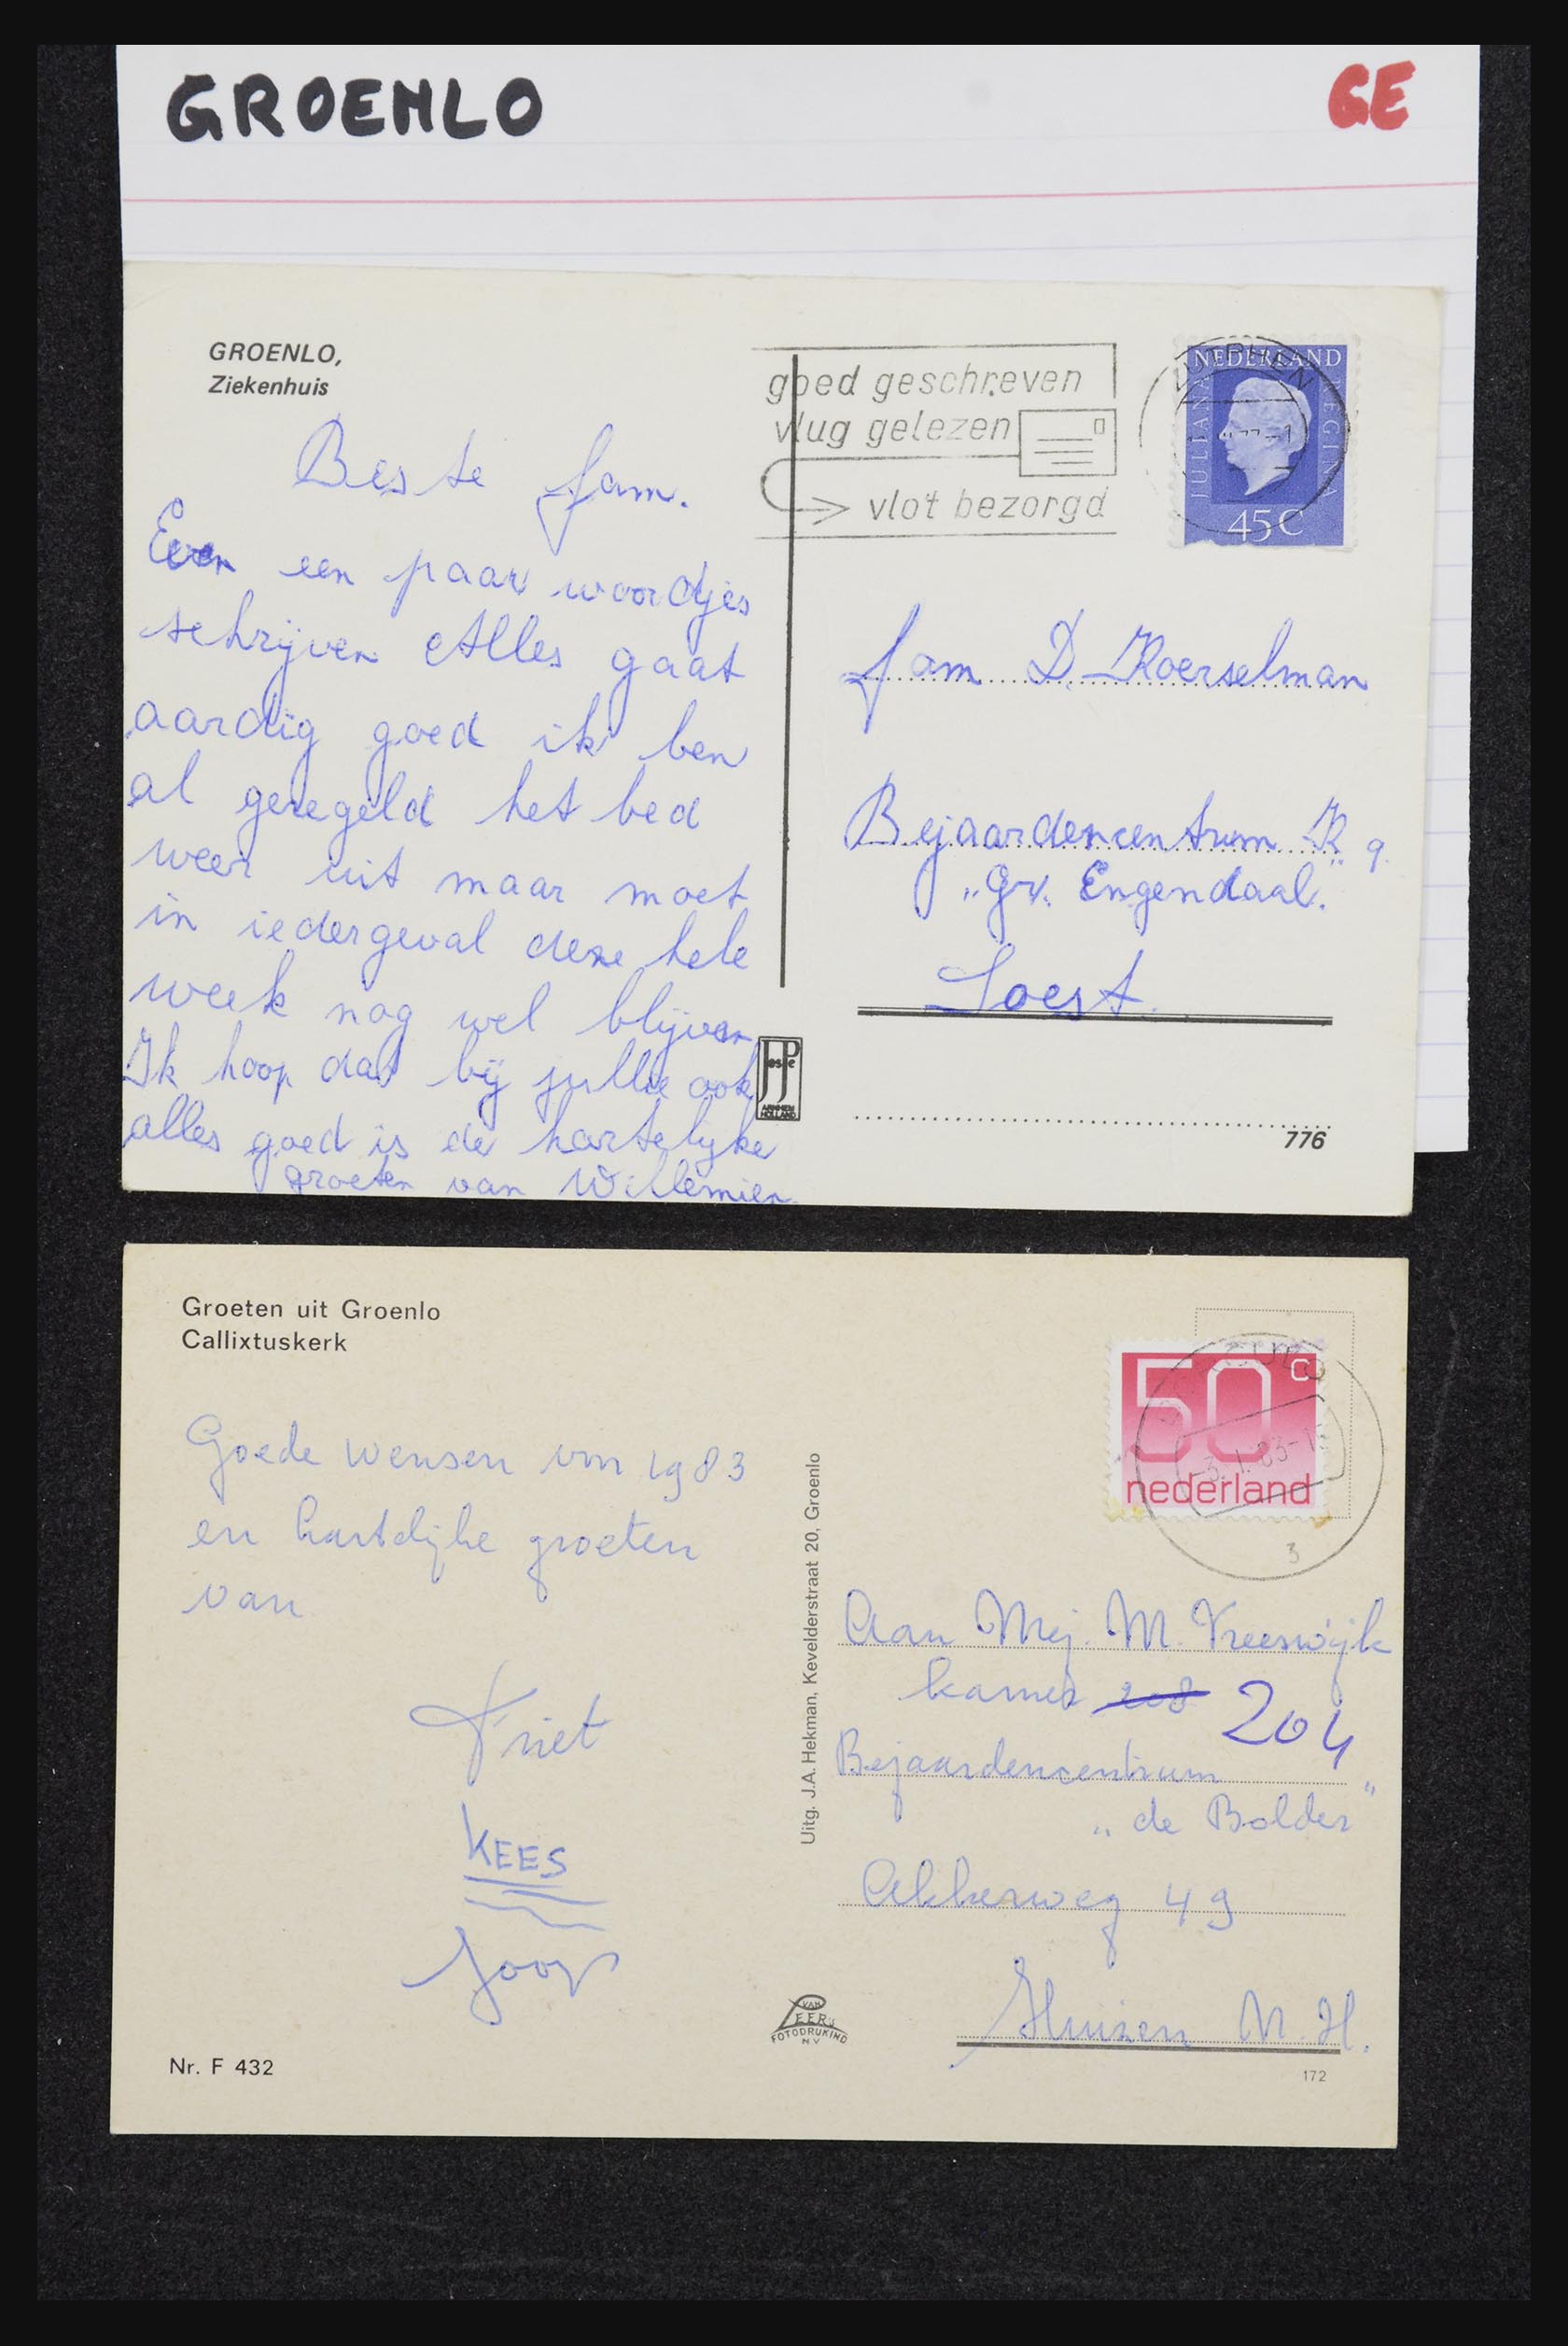 GROENLO
GE
GROENLO,
Ziekenhuis
goed geschreven
vlug gelezen
vlot bezorgd
ZUTPHEN
NEDERLAND
JULIANA
REGINA
45C
Beste fam.
Even een paar woordjes
schrijven Alles gaat
aardig goed ik ben
al geregeld het bed
weer uit maar moet
in iedergeval deze hele
week nog wel blijven
Ik hoop dat bij jullie ook
alles goed is de hartelijke
groeten van Willemien.
fam D. Roerselman
Bejaardencentrum K 9.
"Gr. Engendaal."
Soest.
JosPe
ARNHEM
HOLLAND
776
Groeten uit Groenlo
Callixtuskerk
50c
nederland
-3.1.83-
3
Goede wensen vm 1983
en hartelijke groeten
van
Kriet
KEES
Joop
Uitg. J.A. Hekman, Kevelderstraat 20, Groenlo
Aan Mej. M. Vreeswijk
kamer 208 204
Bejaardencentrum
"de Bolder"
Akkerweg 49
Huizen N.H.
VAN
LEER's
FOTODRUKIND
N V
Nr. F 432
172